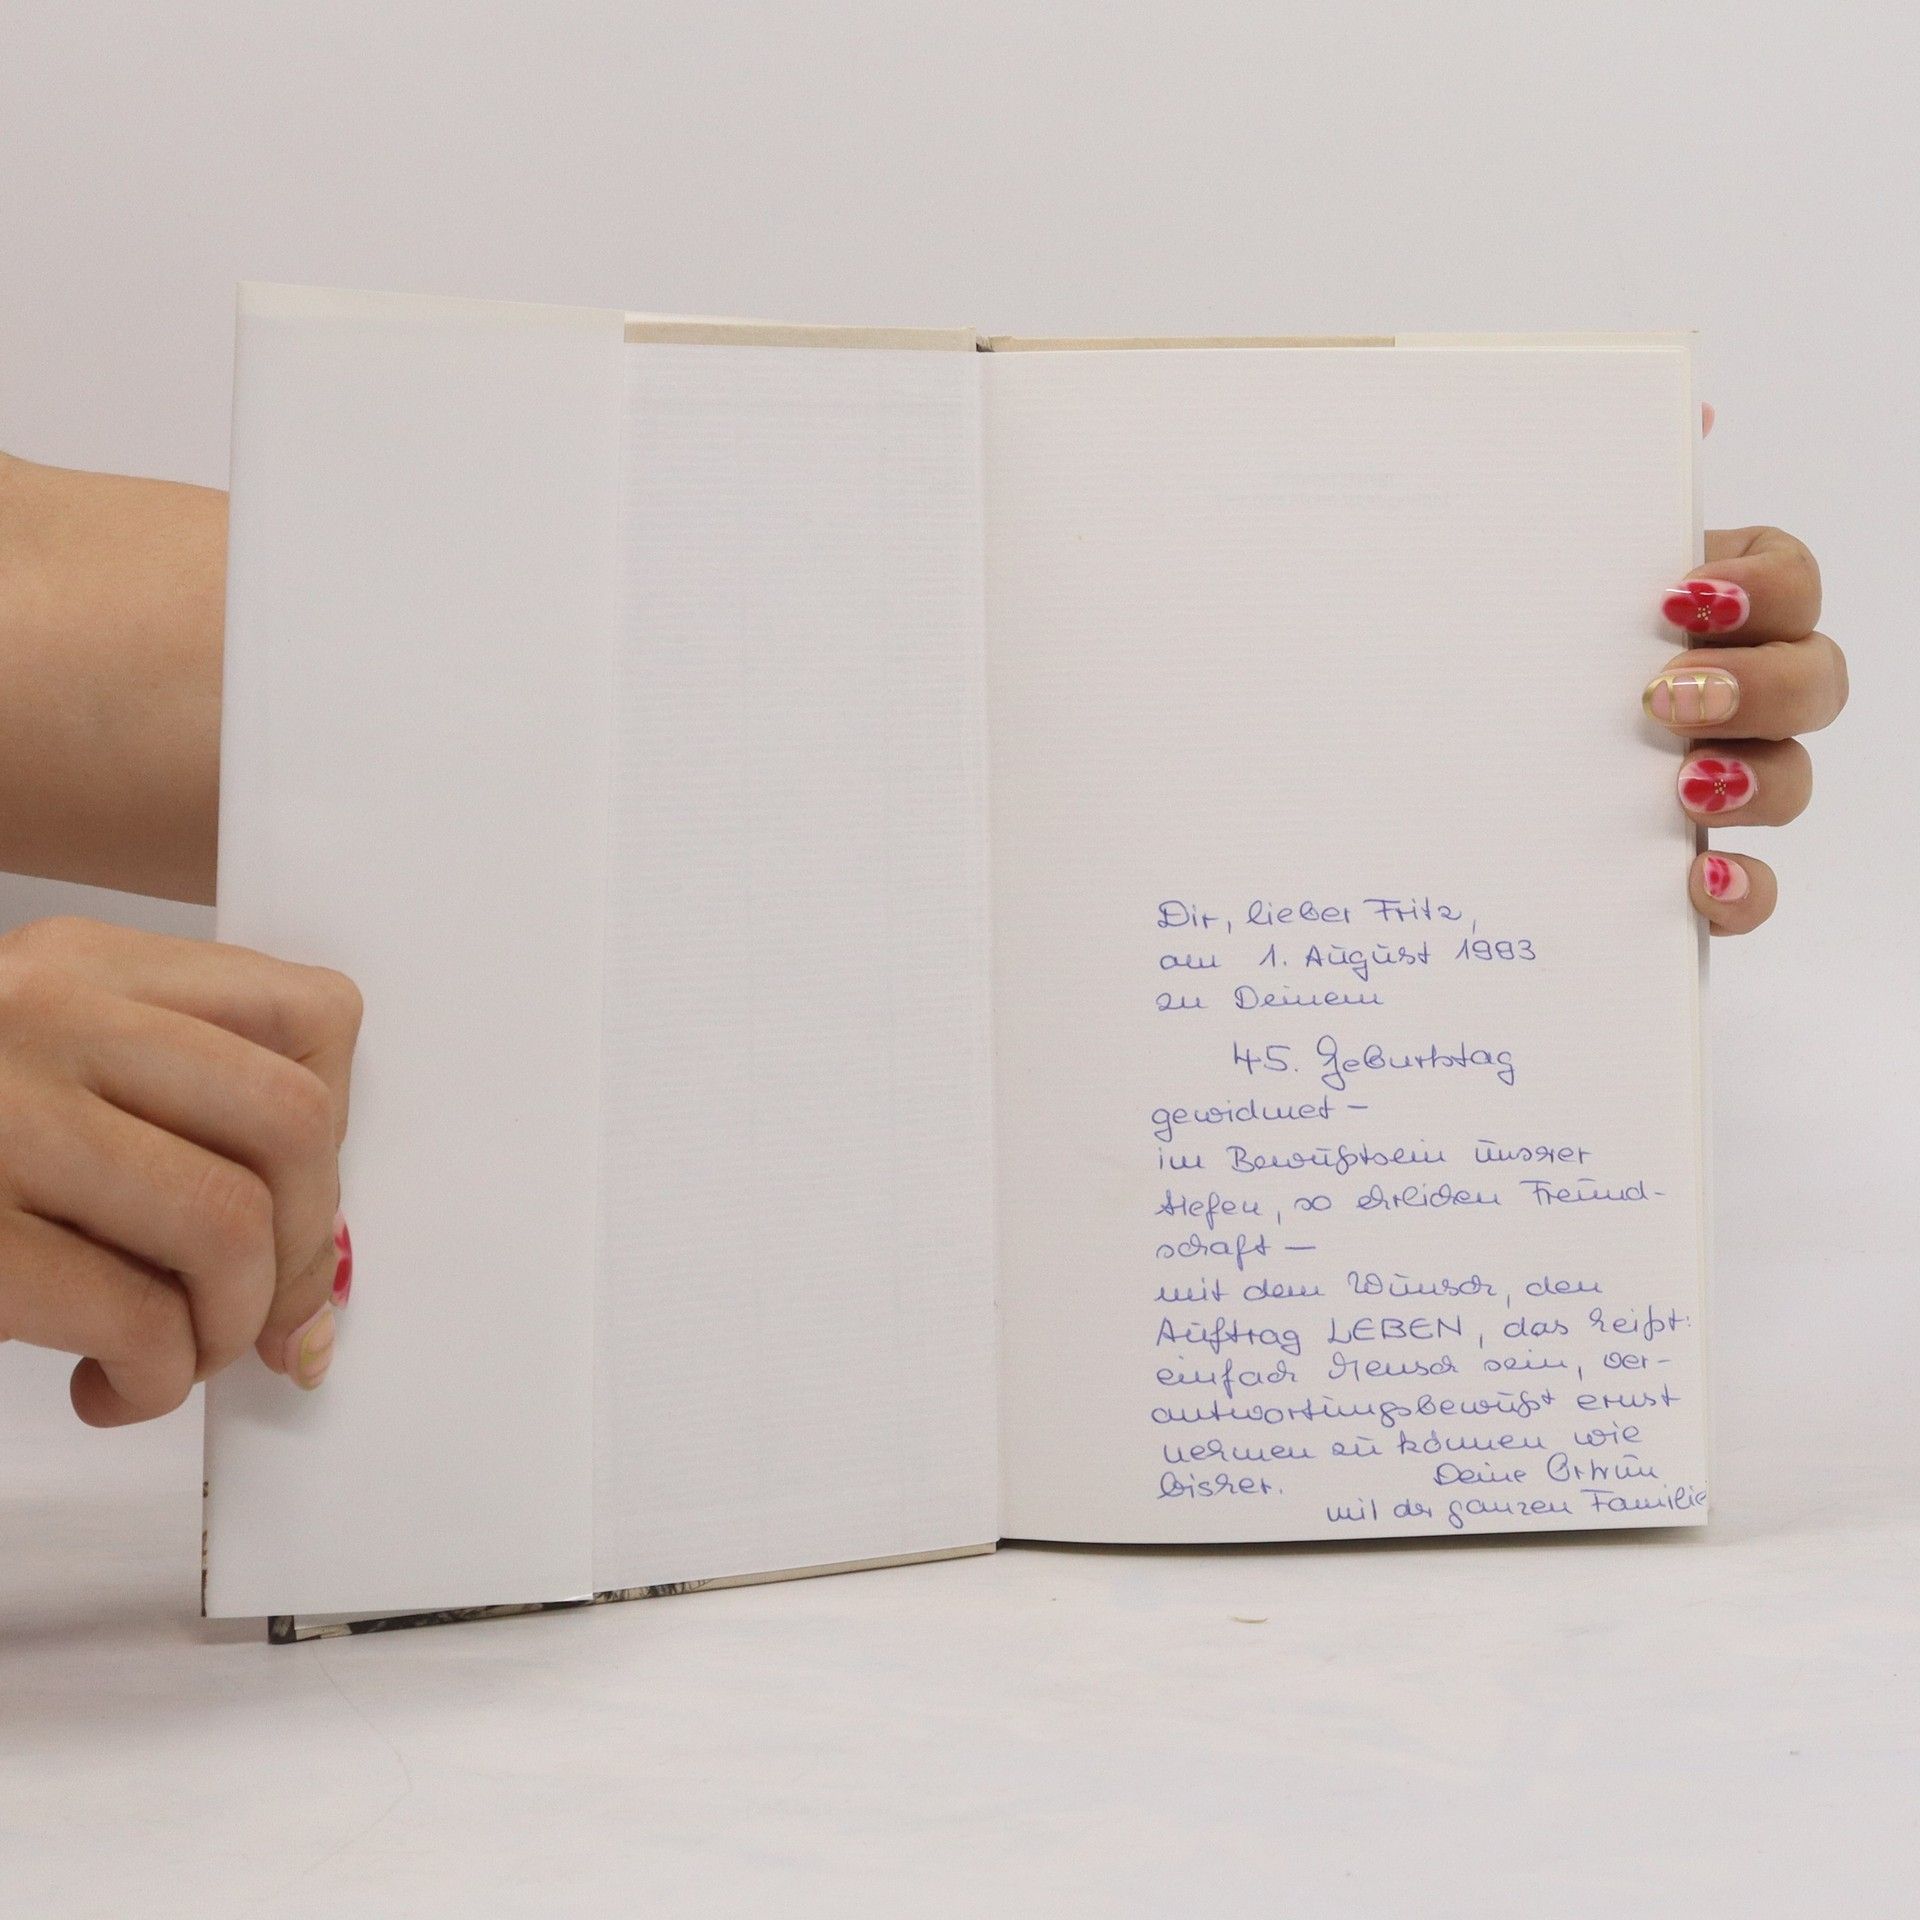 Dir, lieber Fritz,
am 1. August 1993
zu Deinem
45. Geburtstag
gewidmet –
im Bewußtsein unsrer
tiefen, so ehrlichen Freund-
schaft –
mit dem Wunsch, den
Auftrag LEBEN, das heißt:
einfach Mensch sein, ver-
antwortungsbewußt ernst
nehmen zu können wie
bisher. Deine Ortrun
mit der ganzen Familie